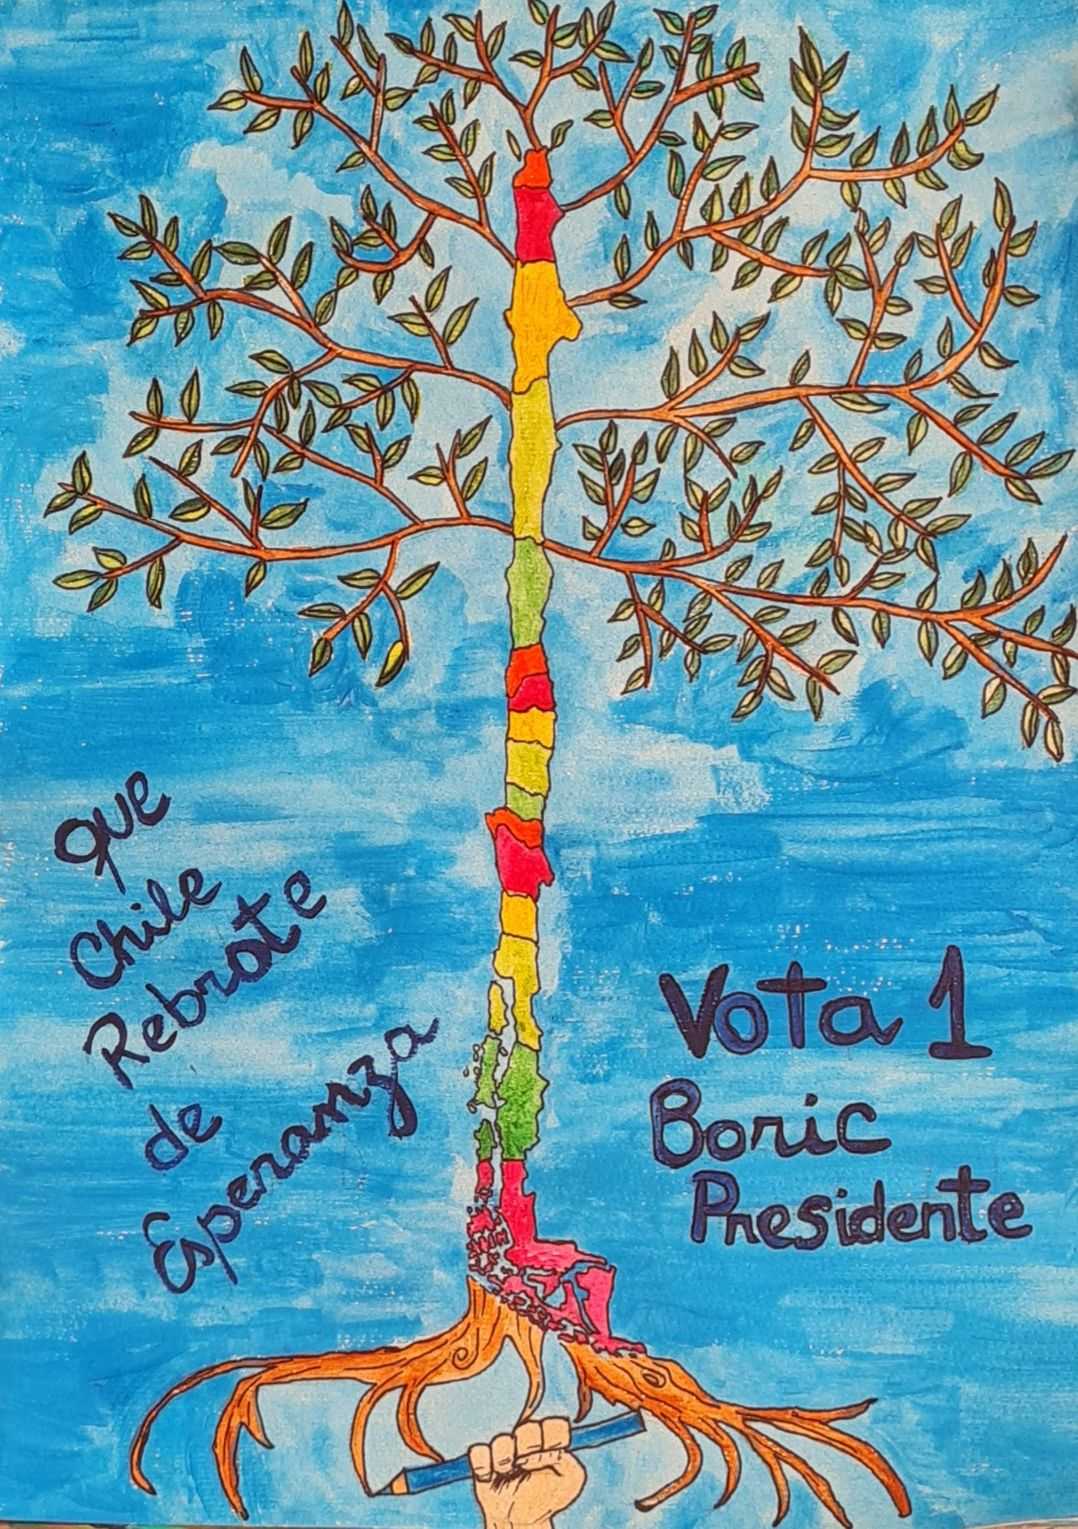 que
Chile
Rebrote
de
Esperanza
Vota 1
Boric
Presidente